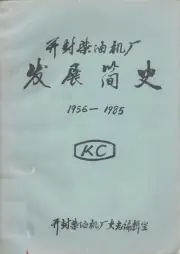 开封柴油机厂
发展简史
1956—1985
KC
开封柴油机厂史志编辑室